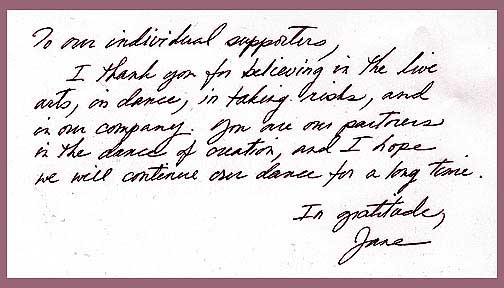 To our individual supporters,
I thank you for believing in the live
arts, in dance, in taking risks, and
in our company. You are our partners
in the dance of creation, and I hope
we will continue our dance for a long time.
In gratitude,
Jane